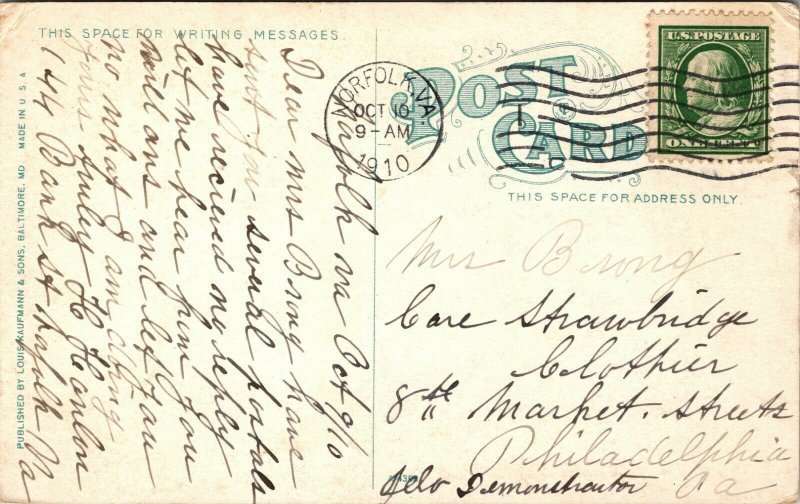 THIS SPACE FOR WRITING MESSAGES.
Norfolk va Oct 9/10
Dear Mrs Brong have
sent you several postals
have recieved no reply
let me hear from you
will ans and let you
no what I am doing
yours truley H Hanlon
144 Bank st Norfolk Va
PUBLISHED BY LOUIS KAUFMANN & SONS, BALTIMORE, MD. MADE IN U.S.A
NORFOLK, VA.
OCT 10
9-AM
1910
POST
CARD
U.S. POSTAGE
ONE CENT
THIS SPACE FOR ADDRESS ONLY.
Mrs Brong
Care Strawbridge
Clothier
8th Market. Streets
Philadelphia
Demonstrator Pa